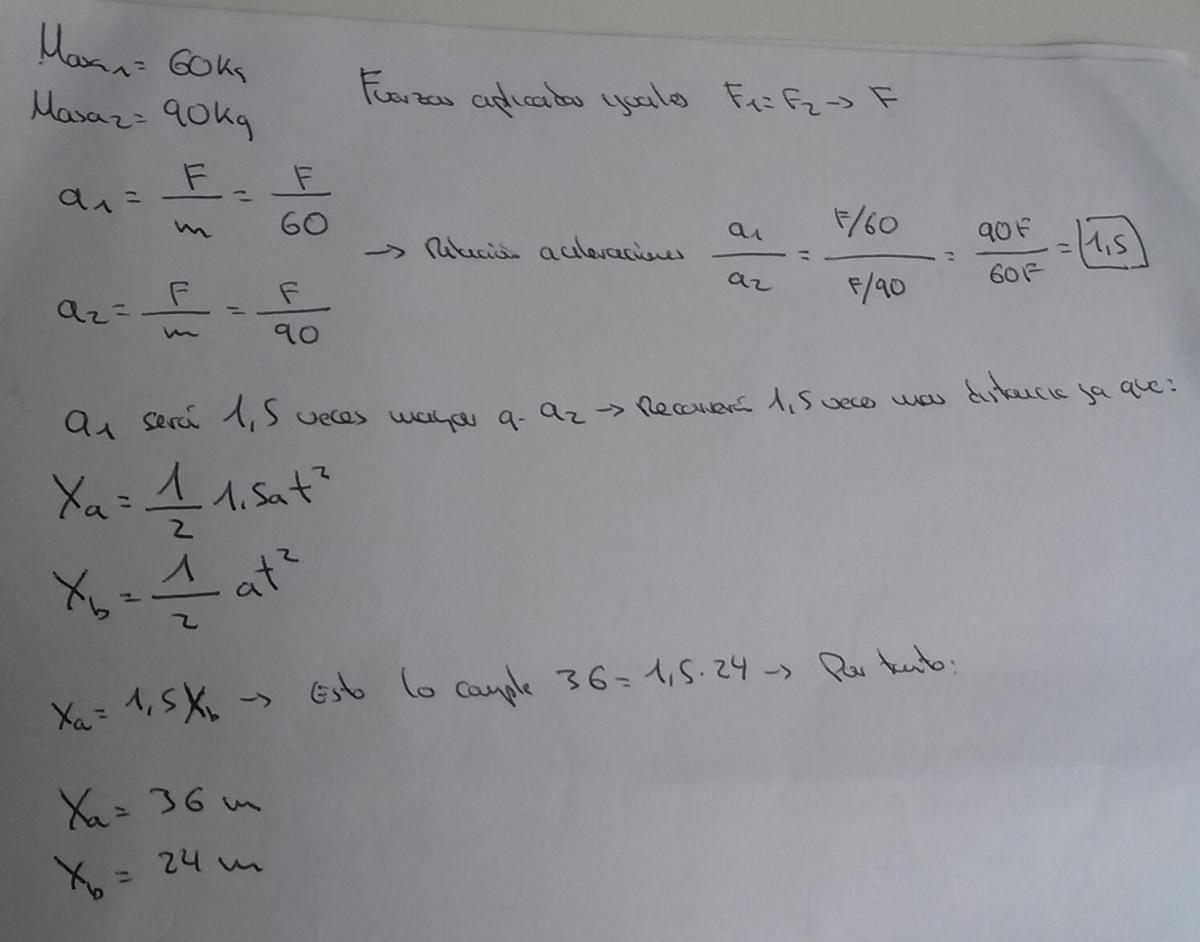 Masa1 = 60Kg
Masa2 = 90Kg
Fuerzas aplicadas iguales F1 = F2 → F
a1 = F/m = F/60
a2 = F/m = F/90
→ Relación aceleraciones a1/a2 = (F/60)/(F/90) = 90F/60F = 1,5
a1 será 1,5 veces mayor q. a2 → Recorrerá 1,5 veces más distancia ya que:
Xa = 1/2 1,5at²
Xb = 1/2 at²
Xa = 1,5Xb → Esto lo cumple 36 = 1,5·24 → Por tanto:
Xa = 36 m
Xb = 24 m